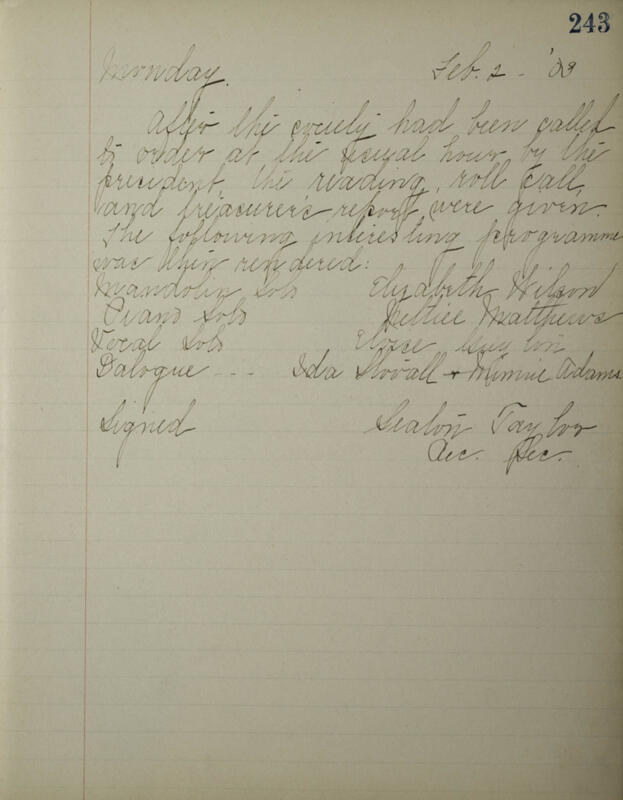 243
Monday. Feb. 2 - '03
After the society had been called
to order at the usual hour by the
president, the reading, roll call,
and treasurer's report were given.
The following interesting programme
was then rendered:
Mandolin Solo Elizabeth Wilson
Piano Solo Nettie Matthews
Vocal Solo Eloise
Dialogue - - - Ida Stovall + Minnie Adams
Signed Taylor
Rec. Sec.